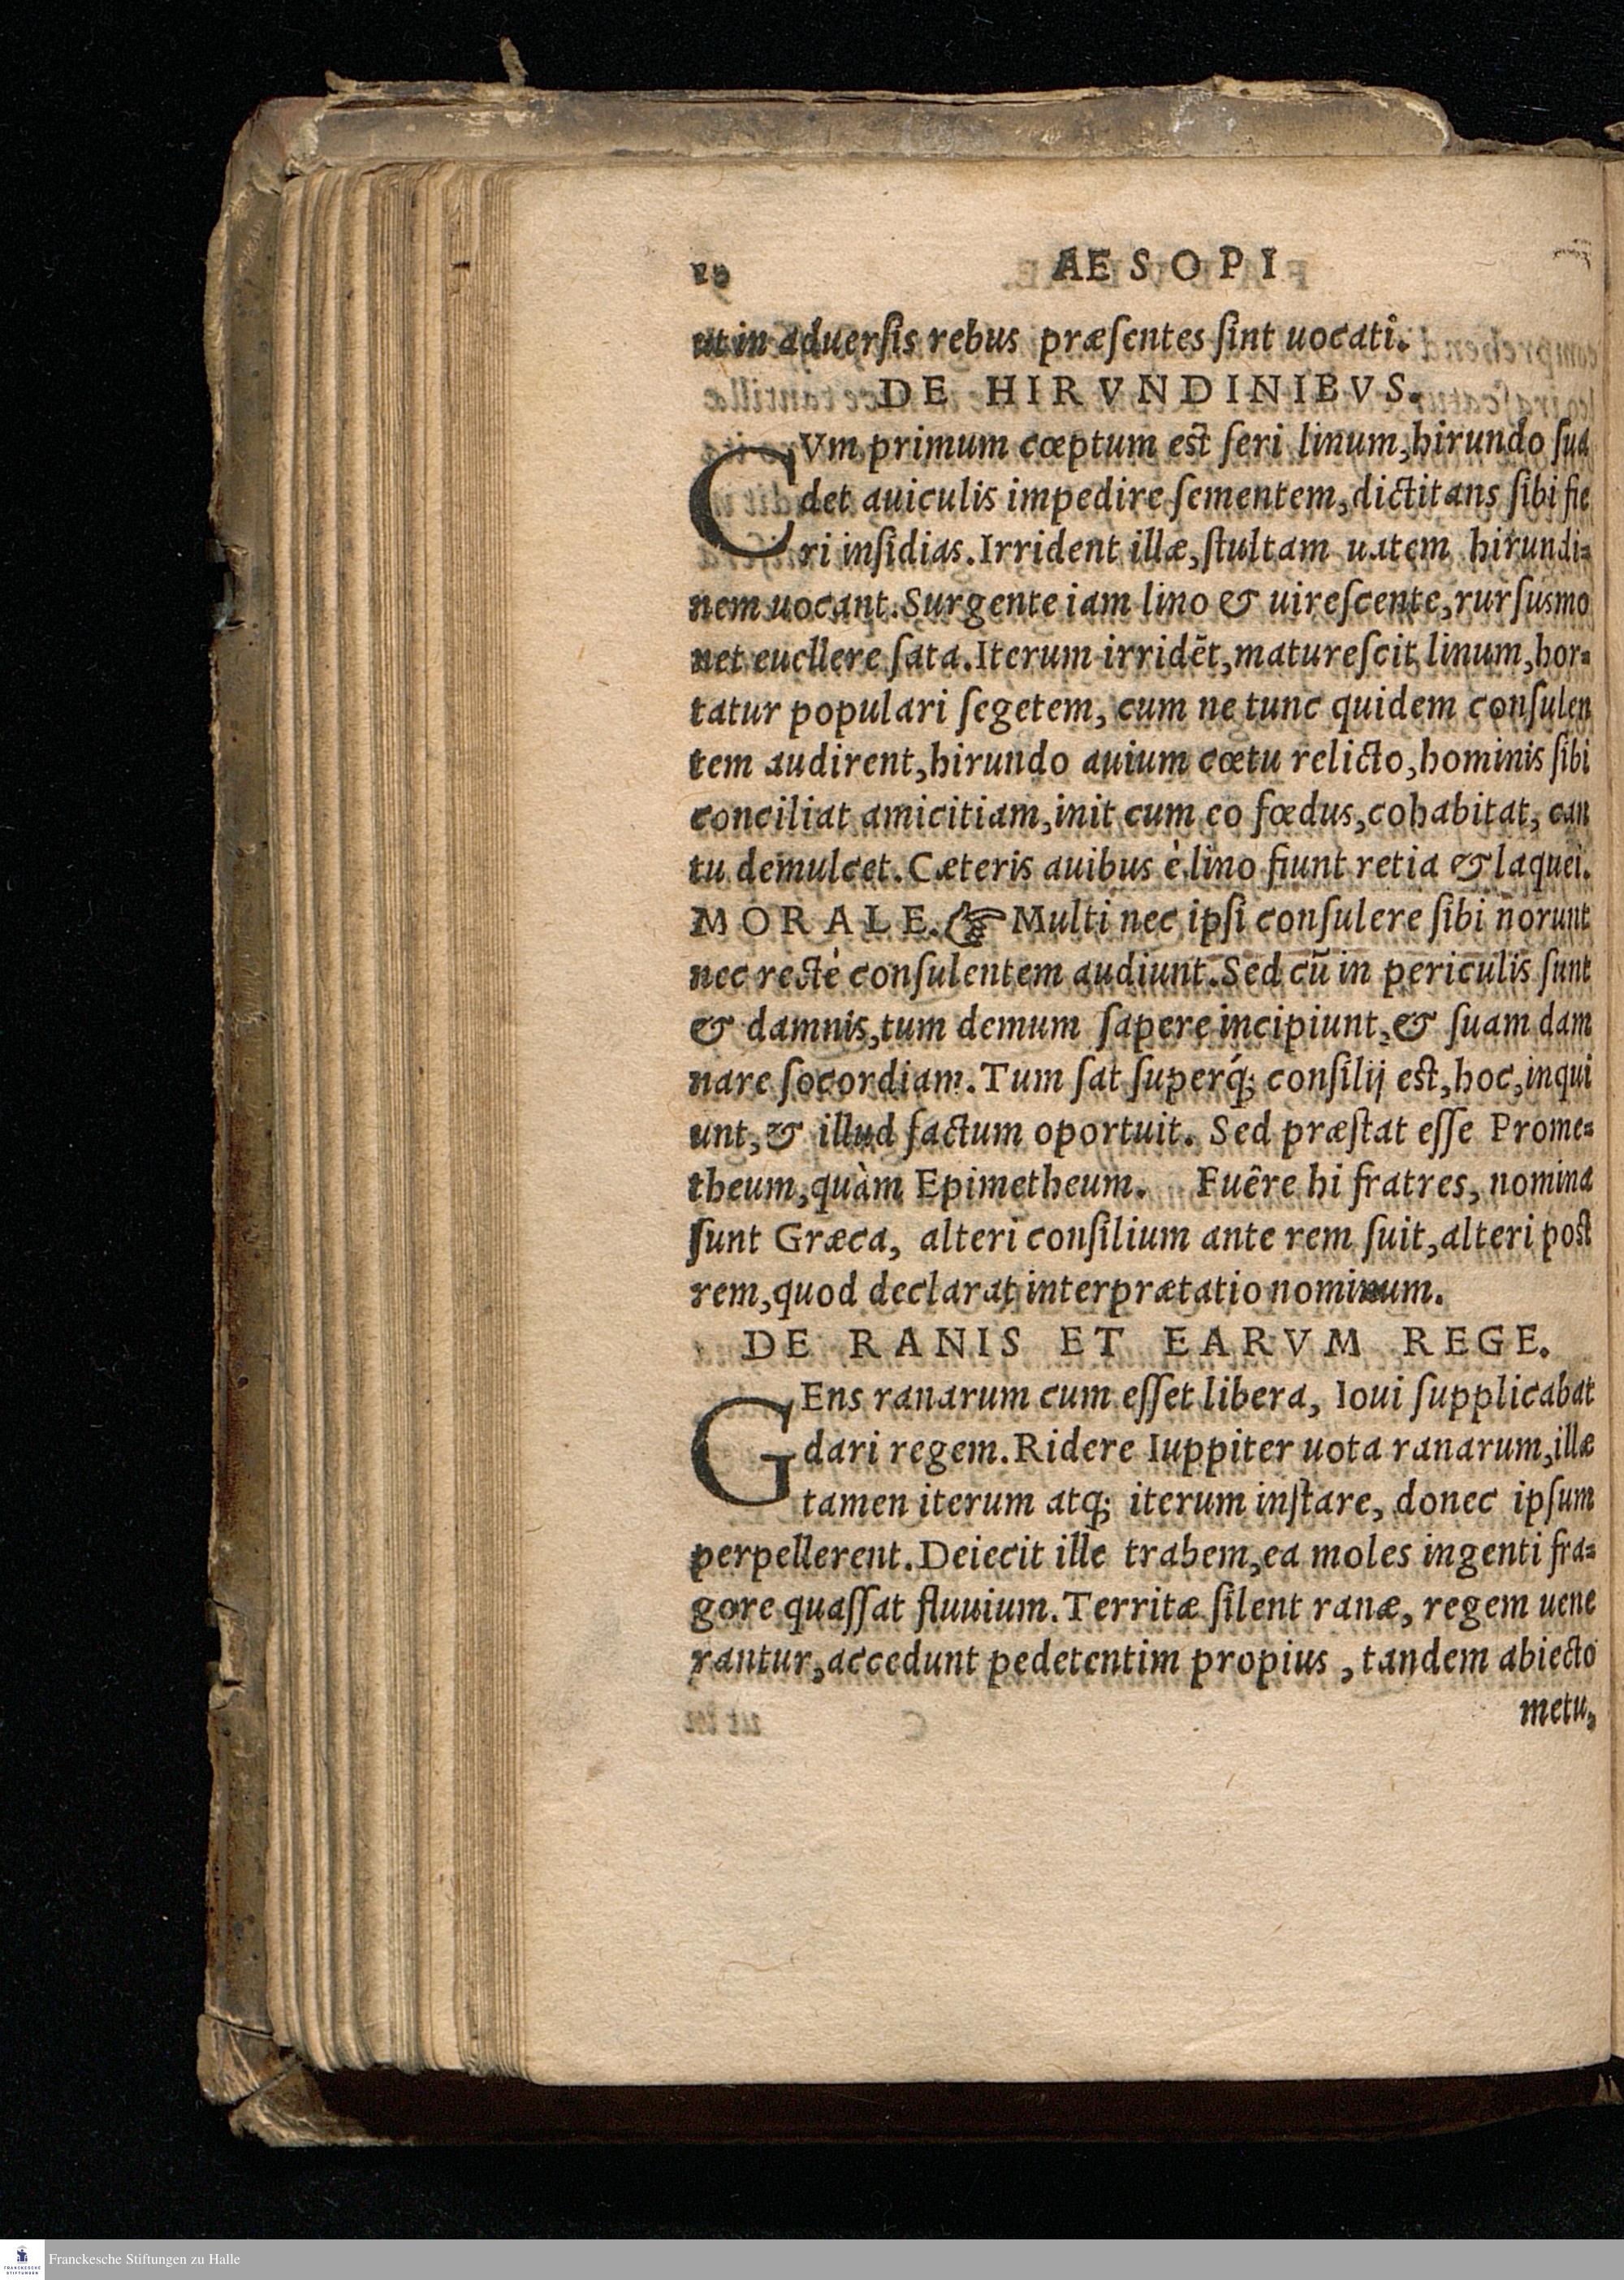 AESOPI
ut in aduerſis rebus præſentes ſint uocati.
DE HIRVNDINIBVS.
CVm primum cœptum est ſeri linum, hirundo ſua
det auiculis impedire ſementem, dictitans ſibi fie
ri inſidias. Irrident illæ, ſtultam uatem hirundi=
nem uocant. Surgente iam lino & uireſcente, rurſus mo
net euellere ſata. Iterum irridẽt, matureſcit linum, hor=
tatur populari ſegetem, cum ne tunc quidem conſulen
tem audirent, hirundo auium cœtu relicto, hominis ſibi
conciliat amicitiam, init cum eo fœdus, cohabitat, can
tu demulcet. Cæteris auibus è lino fiunt retia & laquei.
MORALE. ☞ Multi nec ipſi conſulere ſibi norunt
nec rectè conſulentem audiunt. Sed cũ in periculis ſunt
& damnis, tum demum ſapere incipiunt, & ſuam dam
nare ſocordiam. Tum ſat ſuperq́; conſilij est, hoc, inqui
unt, & illud factum oportuit. Sed præſtat eſſe Prome=
theum, quàm Epimetheum. Fuêre hi fratres, nomina
ſunt Græca, alteri conſilium ante rem fuit, alteri post
rem, quod declarat interprætatio nominum.
DE RANIS ET EARVM REGE.
GEns ranarum cum eſſet libera, Ioui ſupplicabat
dari regem. Ridere Iuppiter uota ranarum, illæ
tamen iterum atq; iterum inſtare, donec ipſum
perpellerent. Deiecit ille trabem, ea moles ingenti fra=
gore quaſſat fluuium. Territæ ſilent ranæ, regem uene
rantur, accedunt pedetentim propius, tandem abiecto
metu,
Franckesche Stiftungen zu Halle